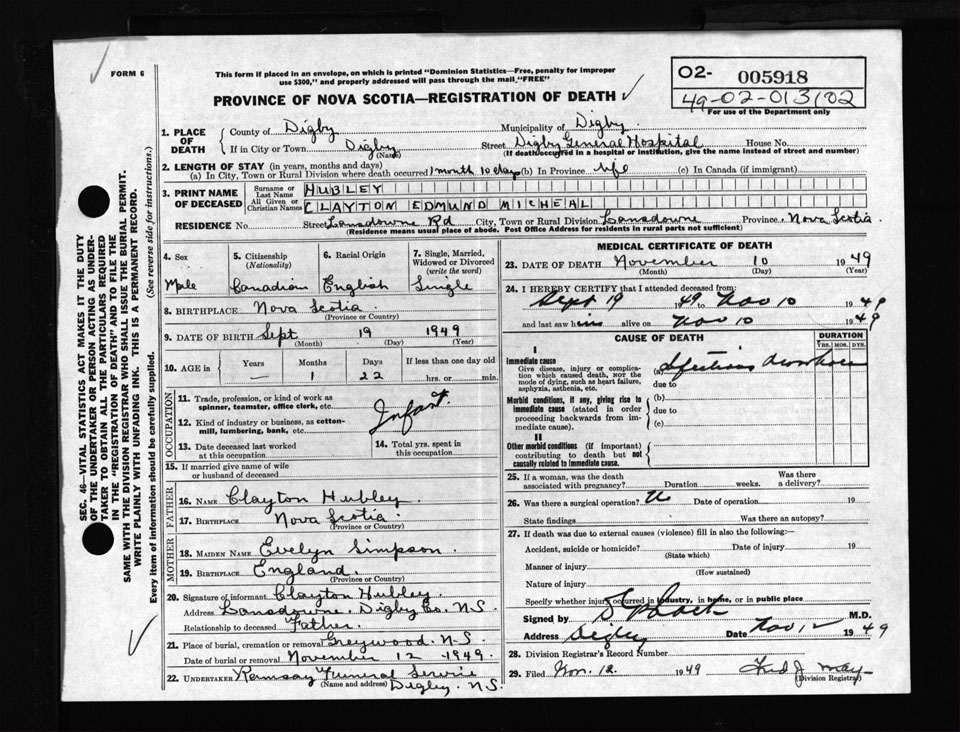 FORM 6
This form if placed in an envelope, on which is printed "Dominion Statistics—Free, penalty for improper
use $300," and properly addressed will pass through the mail "FREE"
PROVINCE OF NOVA SCOTIA—REGISTRATION OF DEATH
02- 005918
49-02-013102
For use of the Department only
1. PLACE OF DEATH
County of Digby Municipality of Digby.
If in City or Town Digby Street Digby General Hospital House No.
(Name) (If death occurred in a hospital or institution, give the name instead of street and number)
2. LENGTH OF STAY (in years, months and days)
(a) In City, Town or Rural Division where death occurred 1 month 10 days (b) In Province life (c) In Canada (if immigrant)
3. PRINT NAME OF DECEASED
Surname or Last Name HUBLEY
All Given or Christian Names CLAYTON EDMUND MICHEAL
RESIDENCE No. Street Lansdowne Rd City, Town or Rural Division Lansdowne Province Nova Scotia
(Residence means usual place of abode. Post Office Address for residents in rural parts not sufficient)
4. Sex
Male
5. Citizenship (Nationality)
Canadian
6. Racial Origin
English
7. Single, Married, Widowed or Divorced (write the word)
Single
8. BIRTHPLACE Nova Scotia
(Province or Country)
9. DATE OF BIRTH Sept 19 1949
(Month) (Day) (Year)
10. AGE in Years — Months 1 Days 22 If less than one day old hrs. or min.
OCCUPATION
11. Trade, profession, or kind of work as spinner, teamster, office clerk, etc.
Infant.
12. Kind of industry or business, as cotton-mill, lumbering, bank, etc.
13. Date deceased last worked at this occupation
14. Total yrs. spent in this occupation
15. If married give name of wife or husband of deceased
FATHER
16. NAME Clayton Hubley.
17. BIRTHPLACE Nova Scotia
(Province or Country)
MOTHER
18. MAIDEN NAME Evelyn Simpson.
19. BIRTHPLACE England.
(Province or Country)
20. Signature of informant Clayton Hubley
Address Lansdowne, Digby Co. N.S.
Relationship to deceased Father.
21. Place of burial, cremation or removal Greywood. N.S.
Date of burial or removal November 12 1949.
22. UNDERTAKER Ramsay Funeral Service
(Name and address) Digby. N.S.
MEDICAL CERTIFICATE OF DEATH
23. DATE OF DEATH November 10 1949
(Month) (Day) (Year)
24. I HEREBY CERTIFY that I attended deceased from:
Sept 19 1949 to Nov 10 1949
and last saw him alive on Nov 10 1949
CAUSE OF DEATH
DURATION
YRS. MOS. DYS.
I
Immediate cause
Give disease, injury or complication which caused death, not the mode of dying, such as heart failure, asphyxia, asthenia, etc.
(a) Infectious diarrhoea
due to
Morbid conditions, if any, giving rise to immediate cause (stated in order proceeding backwards from immediate cause).
(b)
due to
(c)
II
Other morbid conditions (if important) contributing to death but not causally related to immediate cause.
25. If a woman, was the death associated with pregnancy? Duration weeks. Was there a delivery?
26. Was there a surgical operation? No Date of operation 19
State findings Was there an autopsy?
27. If death was due to external causes (violence) fill in also the following:—
Accident, suicide or homicide? Date of injury 19
(State which)
Manner of injury
(How sustained)
Nature of injury
Specify whether injury occurred in industry, in home, or in public place
Signed by M.D.
Address Digby Date Nov 12 1949
28. Division Registrar's Record Number
29. Filed Nov. 12. 1949 Fred J. May
(Division Registrar)
SEC. 46—VITAL STATISTICS ACT MAKES IT THE DUTY
OF THE UNDERTAKER OR PERSON ACTING AS UNDER-
TAKER TO OBTAIN ALL THE PARTICULARS REQUIRED
IN THE "REGISTRATION OF DEATH" AND TO FILE THE
SAME WITH THE DIVISION REGISTRAR WHO SHALL ISSUE THE BURIAL PERMIT.
WRITE PLAINLY WITH UNFADING INK. THIS IS A PERMANENT RECORD.
Every item of information should be carefully supplied. (See reverse side for instructions.)